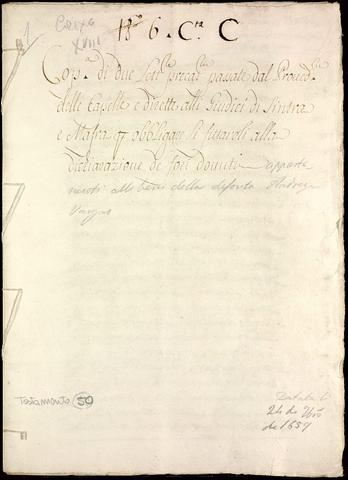 1
Caixa
XVIII
18º 6. Cta. C
Cop.a di due lett.e precar.e passate dal Proved.re
delle Capelle e dirette alli Giudici di Sintra
e Mafra p obbligare li fittaioli alla
dichiarazione de fori dovuti apparte
nenti alli beni della defonta Andreza
Vargas
Testamento 50
Datada de
24 de 7bro
de 1659